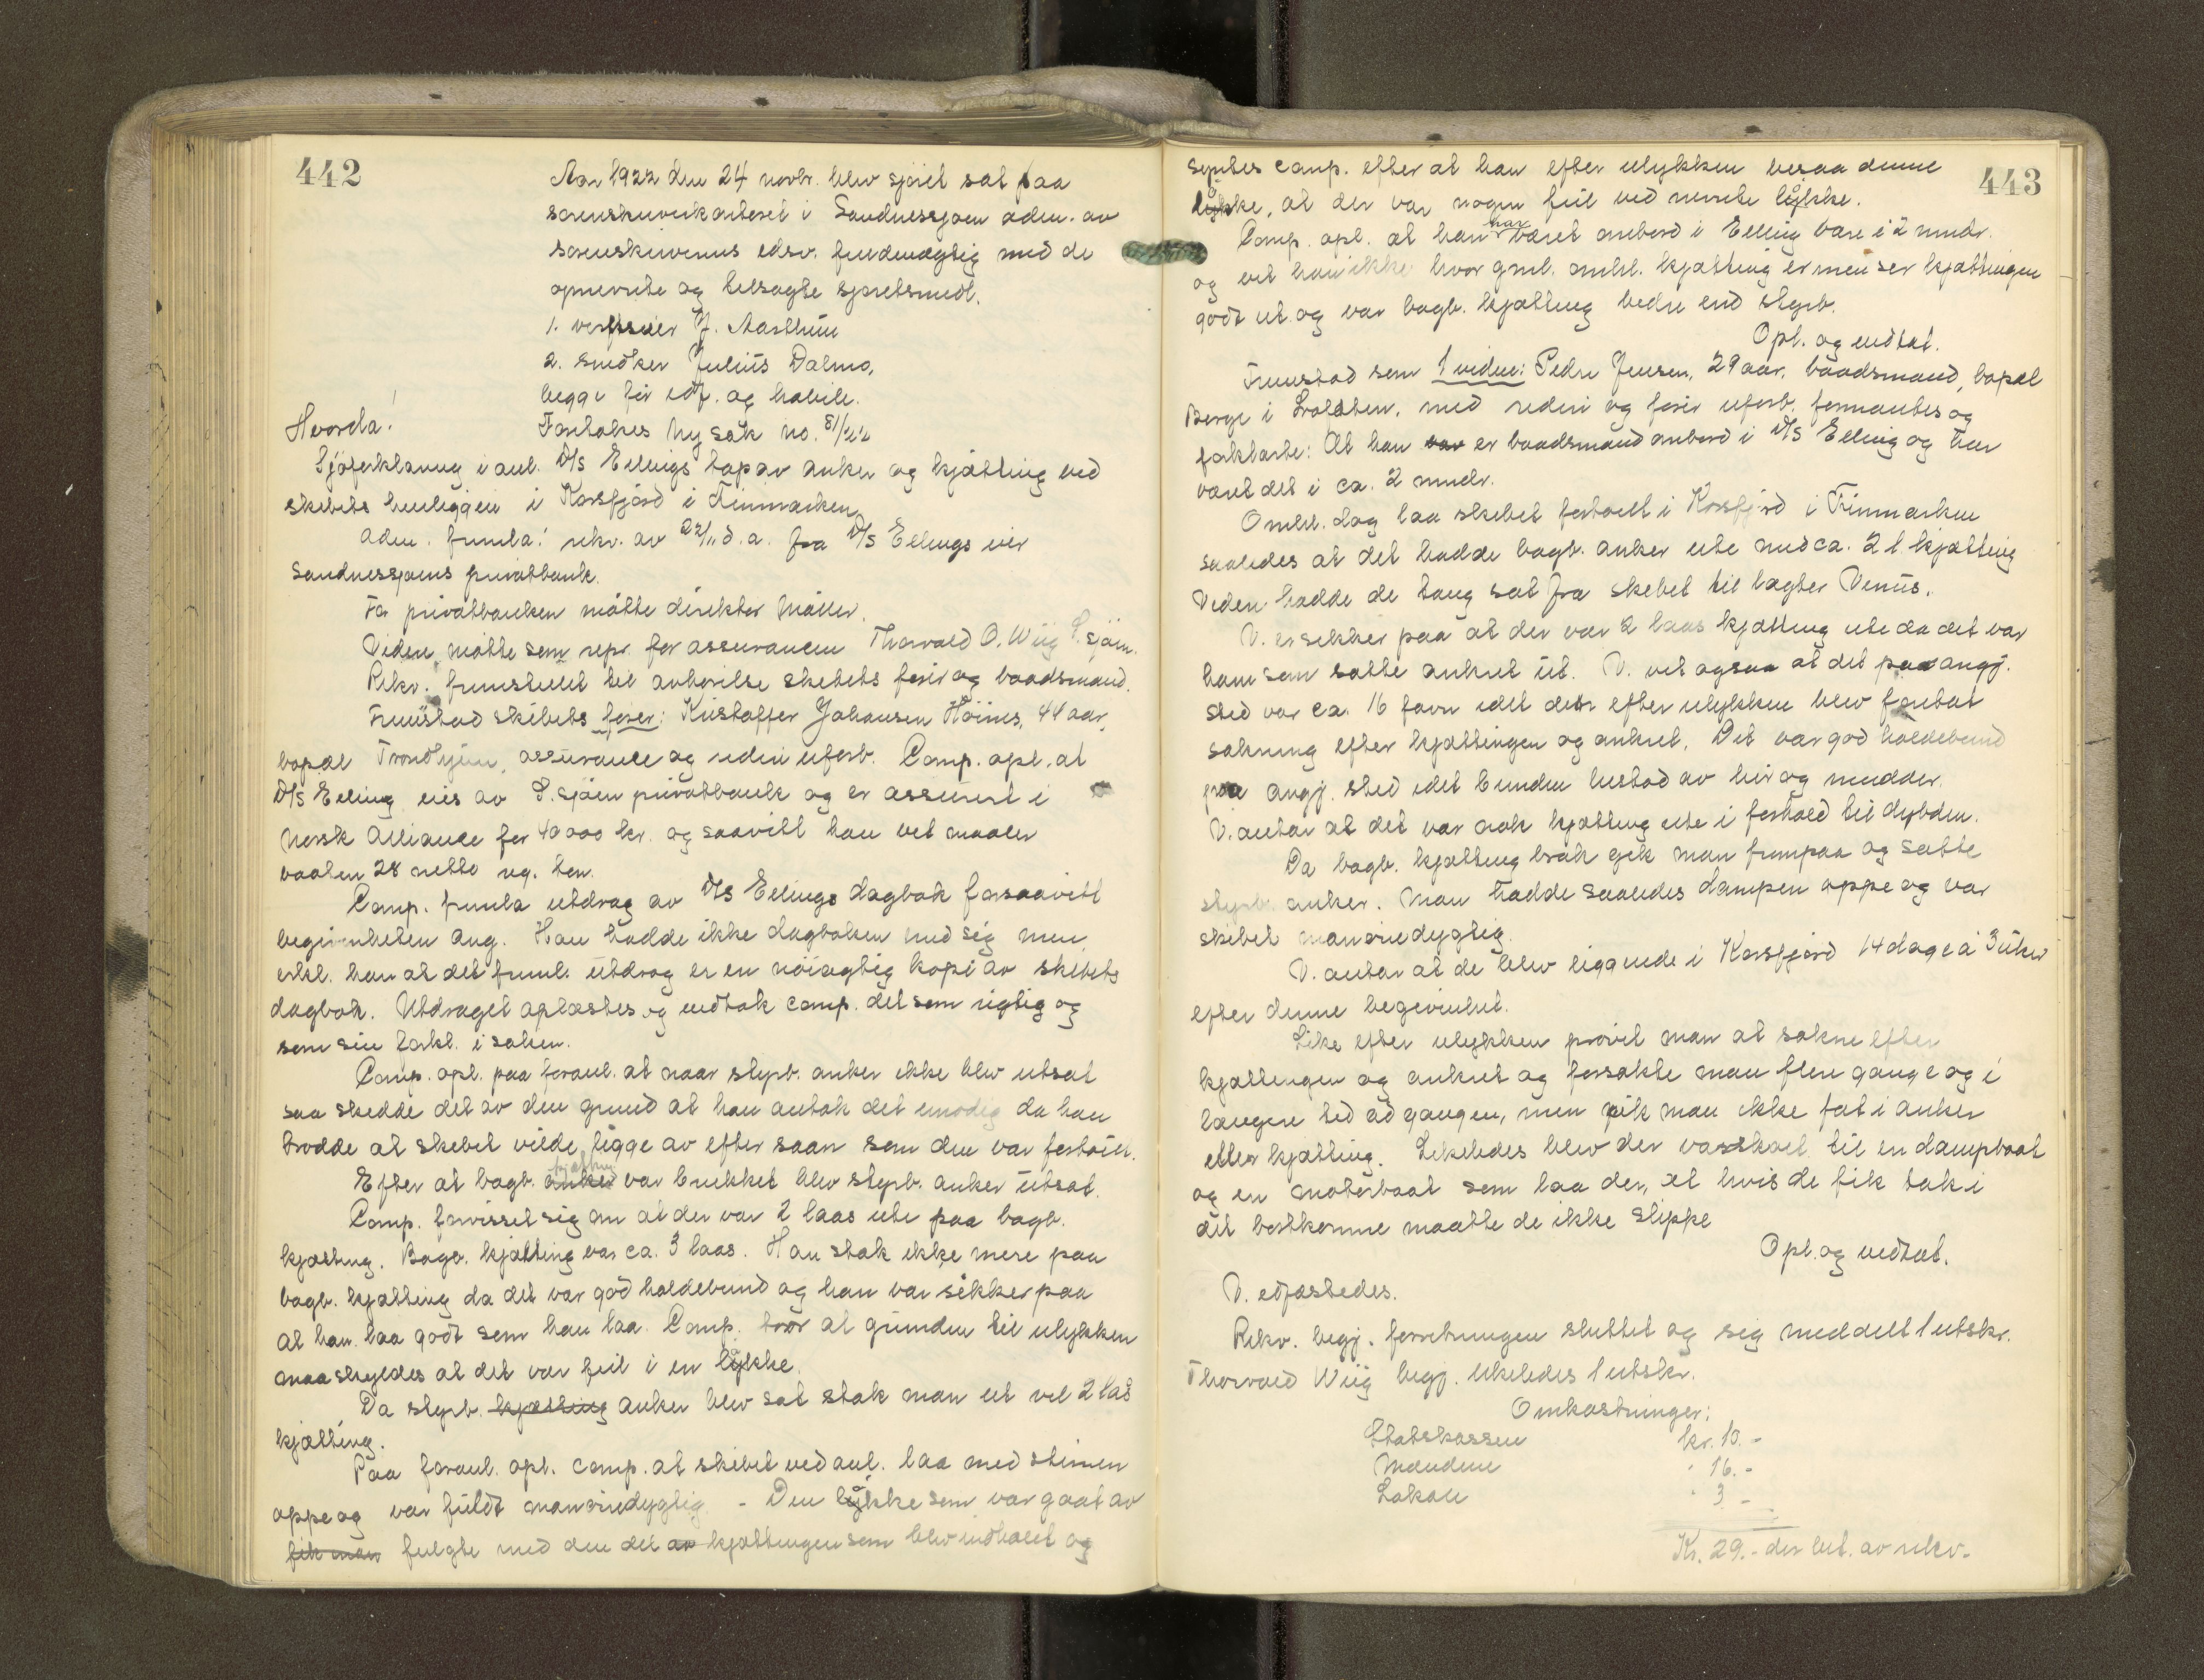 442
Aar 1922 den 24 novbr. blev sjöret sat paa
sorenskriverkontoret i Sandnessjøen adm. av
sorenskriverens edsv. fuldmægtig med de
opnevnte og tilsagte sjøretsmedl.
1. verftseier J. Aasthun
2. snedker Julius Dalmo,
begge før edf. og habile.
Hvorda! Foretokes Ny sak no. 81/22
Sjøforklaring i anl. D/S Ellings tap av anker og kjætting ved
skibets henliggen i Korsfjord i Finmarken
Adm. freml.: rekv. av 22/11 d.a. fra D/S Ellings eier
Sandnessjøens privatbank.
For privatbanken møtte direktør Møller.
Viden møtte som repr. for assurancen Thorvald O. Wiig S.sjöen.
Rekv. fremstillet til avhørelse skibets fører og baadsmand.
Fremstod skibets fører: Kristoffer Johansen Höines, 44 aar,
bopæl Trondhjem, assurance og rederi uforb. Comp. opl. at
D/S Elling eies av S.sjöen privatbank og er assurert i
Norsk Alliance for 40 000 kr. og saavidt han vet maaler
baaten 28 netto reg. ton.
Comp. fremla utdrag av D/S Ellings dagbok forsaavidt
begivenheten ang. Han hadde ikke dagboken med sig men
erkl. han at det freml. utdrag er en nöiagtig kopi av skibets
dagbok. Utdraget oplæstes og vedtok comp. det som rigtig og
som sin forkl. i saken.
Comp. opl. paa foranl. at naar styrb. anker ikke blev utsat
saa skedde det av den grund at han antok det unödig da han
trodde at skibet vilde ligge av efter saan som den var fortöiet.
Efter at bagb. anker kjætting var brukket blev styrb. anker utsat.
Comp. forvisset sig om at der var 2 laas ute paa bagb.
kjætting. Bagb. kjætting var ca. 3 laas. Han stak ikke mere paa
bagb. kjætting da det var god holdebund og han var sikker paa
at han laa godt som han laa. Comp. tror at grunden til ulykken
maa skyldes at det var feil i en løkke.
Da styrb. kjætting anker blev sat stak man ut vel 2 lås
kjætting.
Paa foranl. opl. comp. at skibet ved anl. laa med stimen
oppe og var fuldt manöverdygtig. - Den løkke som var gaat av
fik man fulgte med den del av kjættingen som blev indhalet og
443
syntes comp. efter at han efter ulykken besaa denne
løkke, at der var nogen feil ved nevnte løkke.
Comp. opl. at han har været ombord i Elling bare i 2 mndr.
og vet han ikke hvor gml. omhl. kjætting er men ser kjættingen
godt ut og var bagb. kjætting bedre end styrb.
Opl. og vedtat.
Fremstod som 1 vidne: Peder Jensen, 29 aar, baadsmand, bopæl
Berge i Lofoten, med rederi og fører uforb. formantes og
forklarte: At han var er baadsmand ombord i D/S Elling og har
været det i ca. 2 mndr.
Omhl. dag laa skibet fortöiet i Korsfjord i Finmarken
saaledes at det hadde bagb. anker ute med ca. 2 l. kjætting
Viden hadde de taug sat fra skibet til lægter Venus.
V. er sikker paa at der var 2 laas kjætting ute da det var
ham som satte ankret ut. V. vet ogsaa at det paa angj.
sted var ca. 16 favn idet der efter ulykken blev foretat
sokning efter kjættingen og ankret. Det var god holdebund
paa angj. sted idet bunden bestod av leir og mudder.
V. antar at det var nok kjætting ute i forhold til dybden.
Da bagb. kjætting brak gik man frempaa og satte
styrb. anker. Man hadde saaledes dampen oppe og var
skibet manöverdygtig.
V. antar at de blev liggende i Korsfjord 14 dage à 3 uker
efter denne begivenhet.
Like efter ulykken prövet man at sokne efter
kjættingen og ankret og forsøkte man flere gange og i
længere tid ad gangen, men fik man ikke fat i anker
eller kjætting. Likeledes blev der varskoet til en dampbaat
og en motorbaat som laa der, at hvis de fik tak i
det bortkomne maatte de ikke slippe
Opl. og vedtat.
V. edfæstedes.
Rekv. begj. forretningen sluttet og sig meddelt 1 utskr.
Thorvald Wiig begj. likeledes 1 utskr.
Omkostninger:
Statskassen kr. 10.-
Mændene " 16.-
Lokale " 3.-
Kr. 29.- der bet. av rekv.